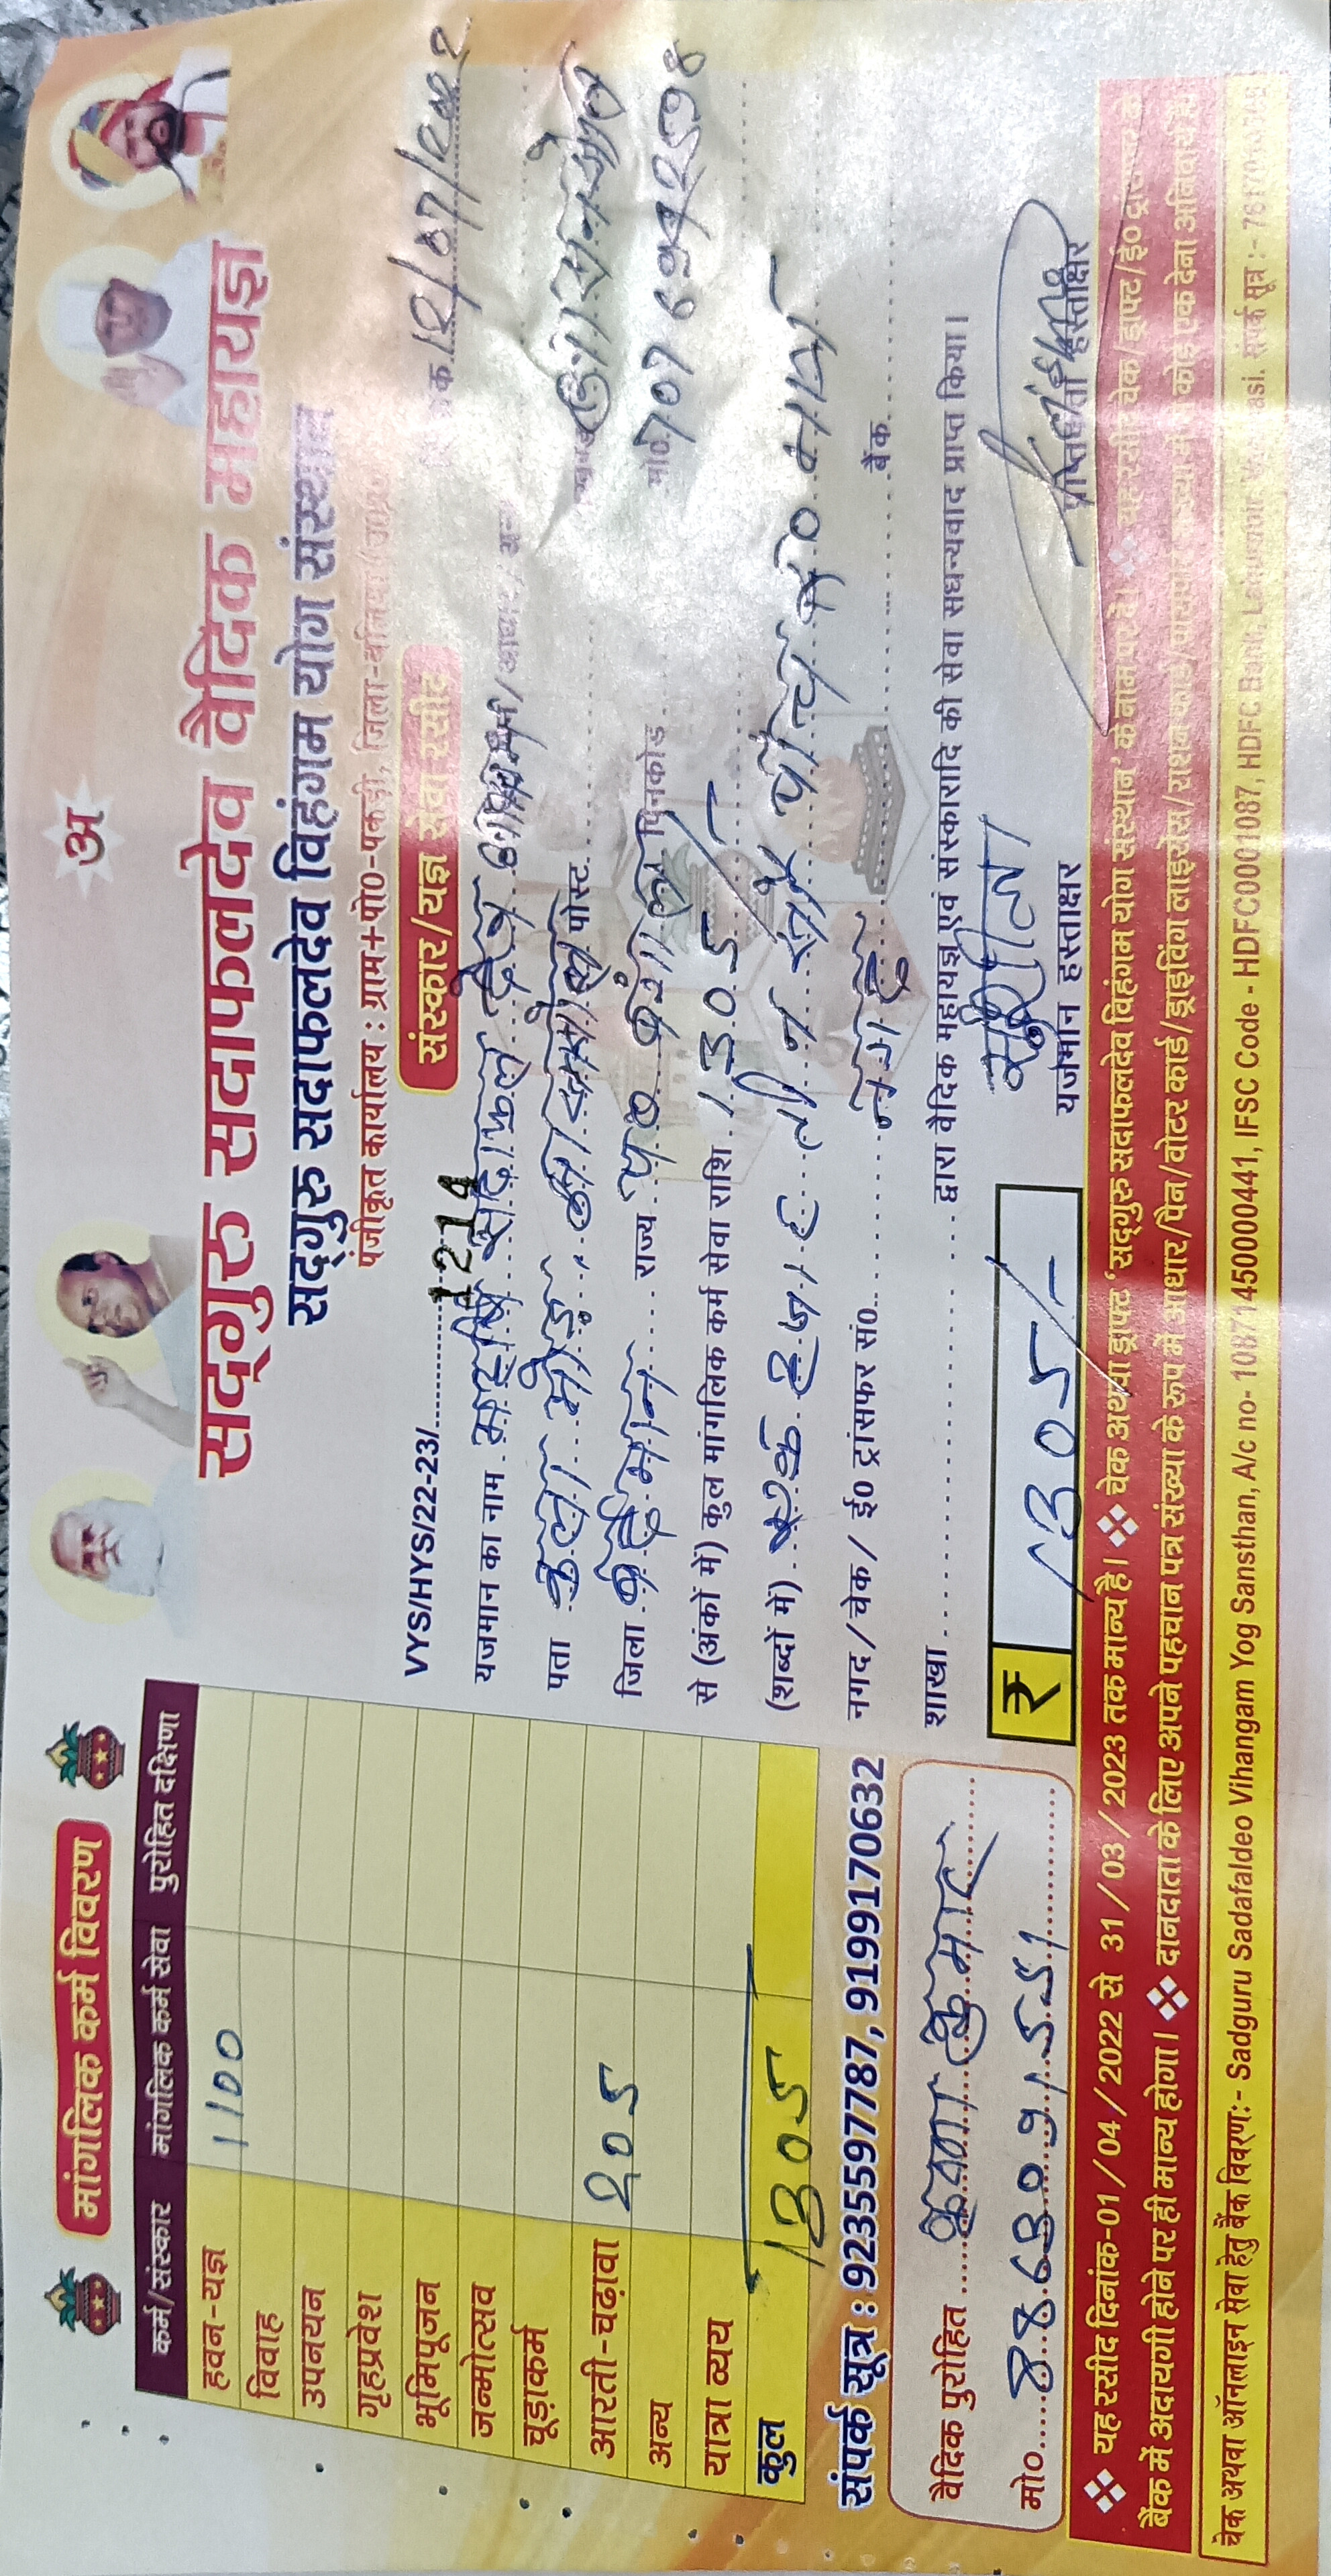 मांगलिक कर्म विवरण
कर्म/संस्कार मांगलिक कर्म सेवा पुरोहित दक्षिणा
हवन-यज्ञ 1100
विवाह
उपनयन
गृहप्रवेश
भूमिपूजन
जन्मोत्सव
चूड़ाकर्म
आरती-चढ़ावा 205
अन्य
यात्रा व्यय
कुल 1305
संपर्क सूत्र : 9235597787, 9199170632
वैदिक पुरोहित कुमार
मो०
अ
सद्गुरु सदाफलदेव वैदिक महायज्ञ
सद्गुरु सदाफलदेव विहंगम योग संस्थान
पंजीकृत कार्यालय : ग्राम+पो०-पकड़ी, जिला-बलिया
संस्कार/यज्ञ सेवा रसीद
VYS/HYS/22-23/ 1214
यजमान का नाम महर्षि सदाफल देव
पता पोस्ट
जिला राज्य पिनकोड मो०
से (अंकों में) कुल मांगलिक कर्म सेवा राशि 1305/-
(शब्दों में) एक हजार तीन सौ पाँच रू० मात्र
नगद/चेक/ ई० ट्रांसफर सं० नगद बैंक
शाखा द्वारा वैदिक महायज्ञ एवं संस्कारादि की सेवा सधन्यवाद प्राप्त किया।
₹ 1305/-
यजमान हस्ताक्षर प्राप्तकर्ता हस्ताक्षर
❖ यह रसीद दिनांक-01/04/2022 से 31/03/2023 तक मान्य है। ❖ चेक अथवा ड्राफ्ट 'सद्गुरु सदाफलदेव विहंगम योग संस्थान' के नाम पर दें। ❖ यह रसीद चेक/ड्राफ्ट/ई०
बैंक में अदायगी होने पर ही मान्य होगा। ❖ दानदाता के लिए अपने पहचान पत्र संख्या के रूप में आधार/पैन/वोटर कार्ड/ड्राइविंग लाइसेंस/राशन कार्ड/ कोई एक देना अनिवार्य है।
चेक अथवा ऑनलाइन सेवा हेतु बैंक विवरण:- Sadguru Sadafaldeo Vihangam Yog Sansthan, A/c no- 10871450000441, IFSC Code - HDFC0001087, HDFC Bank, संपर्क सूत्र :-